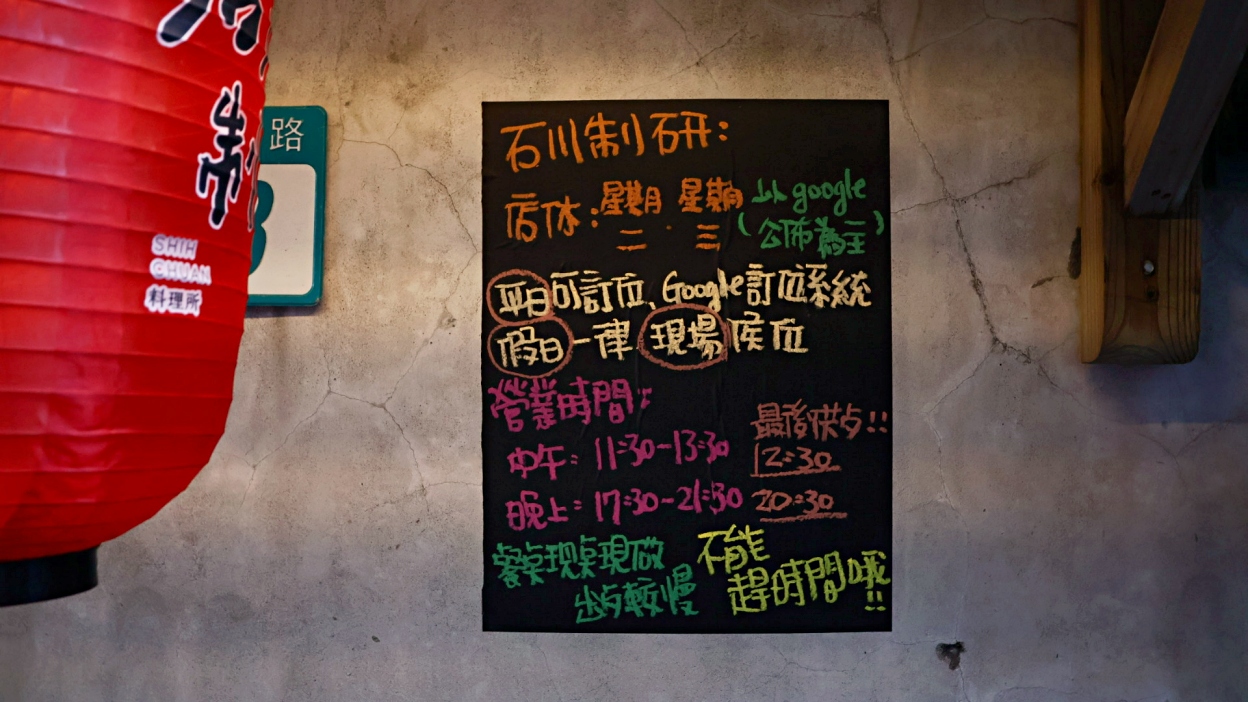 制
SHIH
CHUAN
料理所
路
石川制研:
店休:星期二.星期三
以google
(公佈為主)
平日可訂位、Google訂位系統
假日一律 現場侯位
營業時間:
中午:11:30-13:30
晚上:17:30-21:30
最後供点!!
12:30
20:30
餐桌現桌現做
出占較慢
不能
趕時間哦
!!